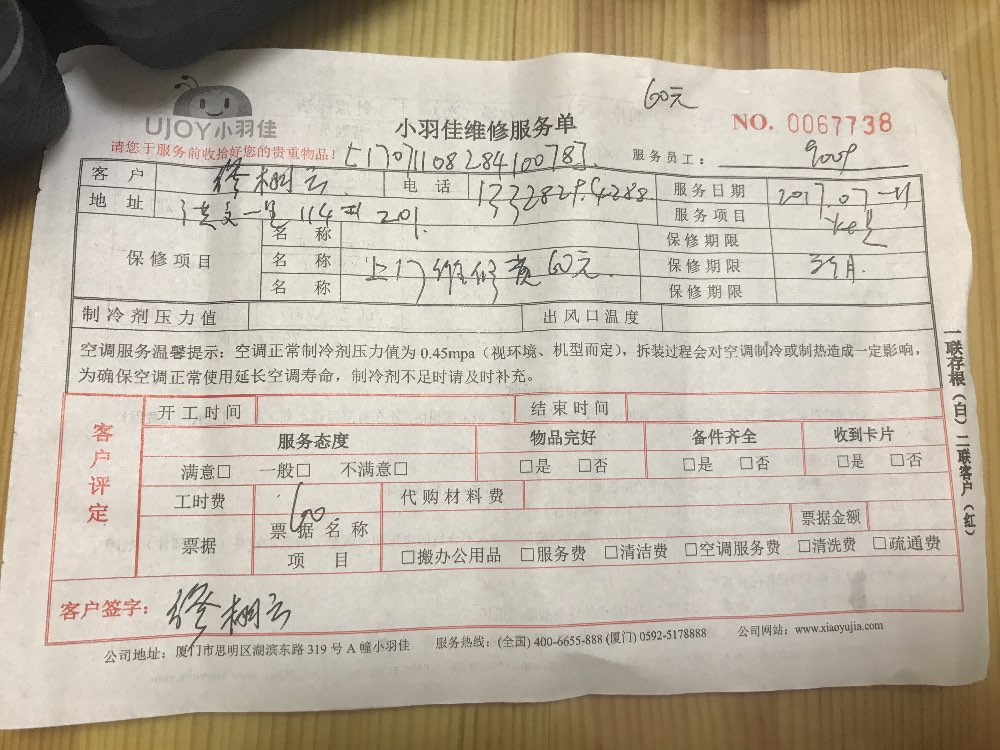 60元
UJOY小羽佳
小羽佳维修服务单
NO. 0067738
请您于服务前收拾好您的贵重物品！
[170711082841 0078].
服务员工：9009
客 户 电 话 服务日期 2017.07
地 址 洪文一里 114 201. 服务项目
保修项目
名 称 保修期限
名 称 上门维修费60元. 保修期限 3个月.
名 称 保修期限
制冷剂压力值 出风口温度
空调服务温馨提示：空调正常制冷剂压力值为 0.45mpa（视环境、机型而定），拆装过程会对空调制冷或制热造成一定影响，
为确保空调正常使用延长空调寿命，制冷剂不足时请及时补充。
客户评定
开工时间 结束时间
服务态度 物品完好 备件齐全 收到卡片
满意□ 一般□ 不满意□ □是 □否 □是 □否 □是 □否
工时费 60 代购材料费
票据 票据名称 票据金额
项 目 □搬办公用品 □服务费 □清洁费 □空调服务费 □清洗费 □疏通费
客户签字：
公司地址：厦门市思明区湖滨东路 319 号 A 幢小羽佳 服务热线：(全国) 400-6655-888 (厦门) 0592-5178888 公司网站：www.xiaoyujia.com
一联存根（白）二联客户（红）